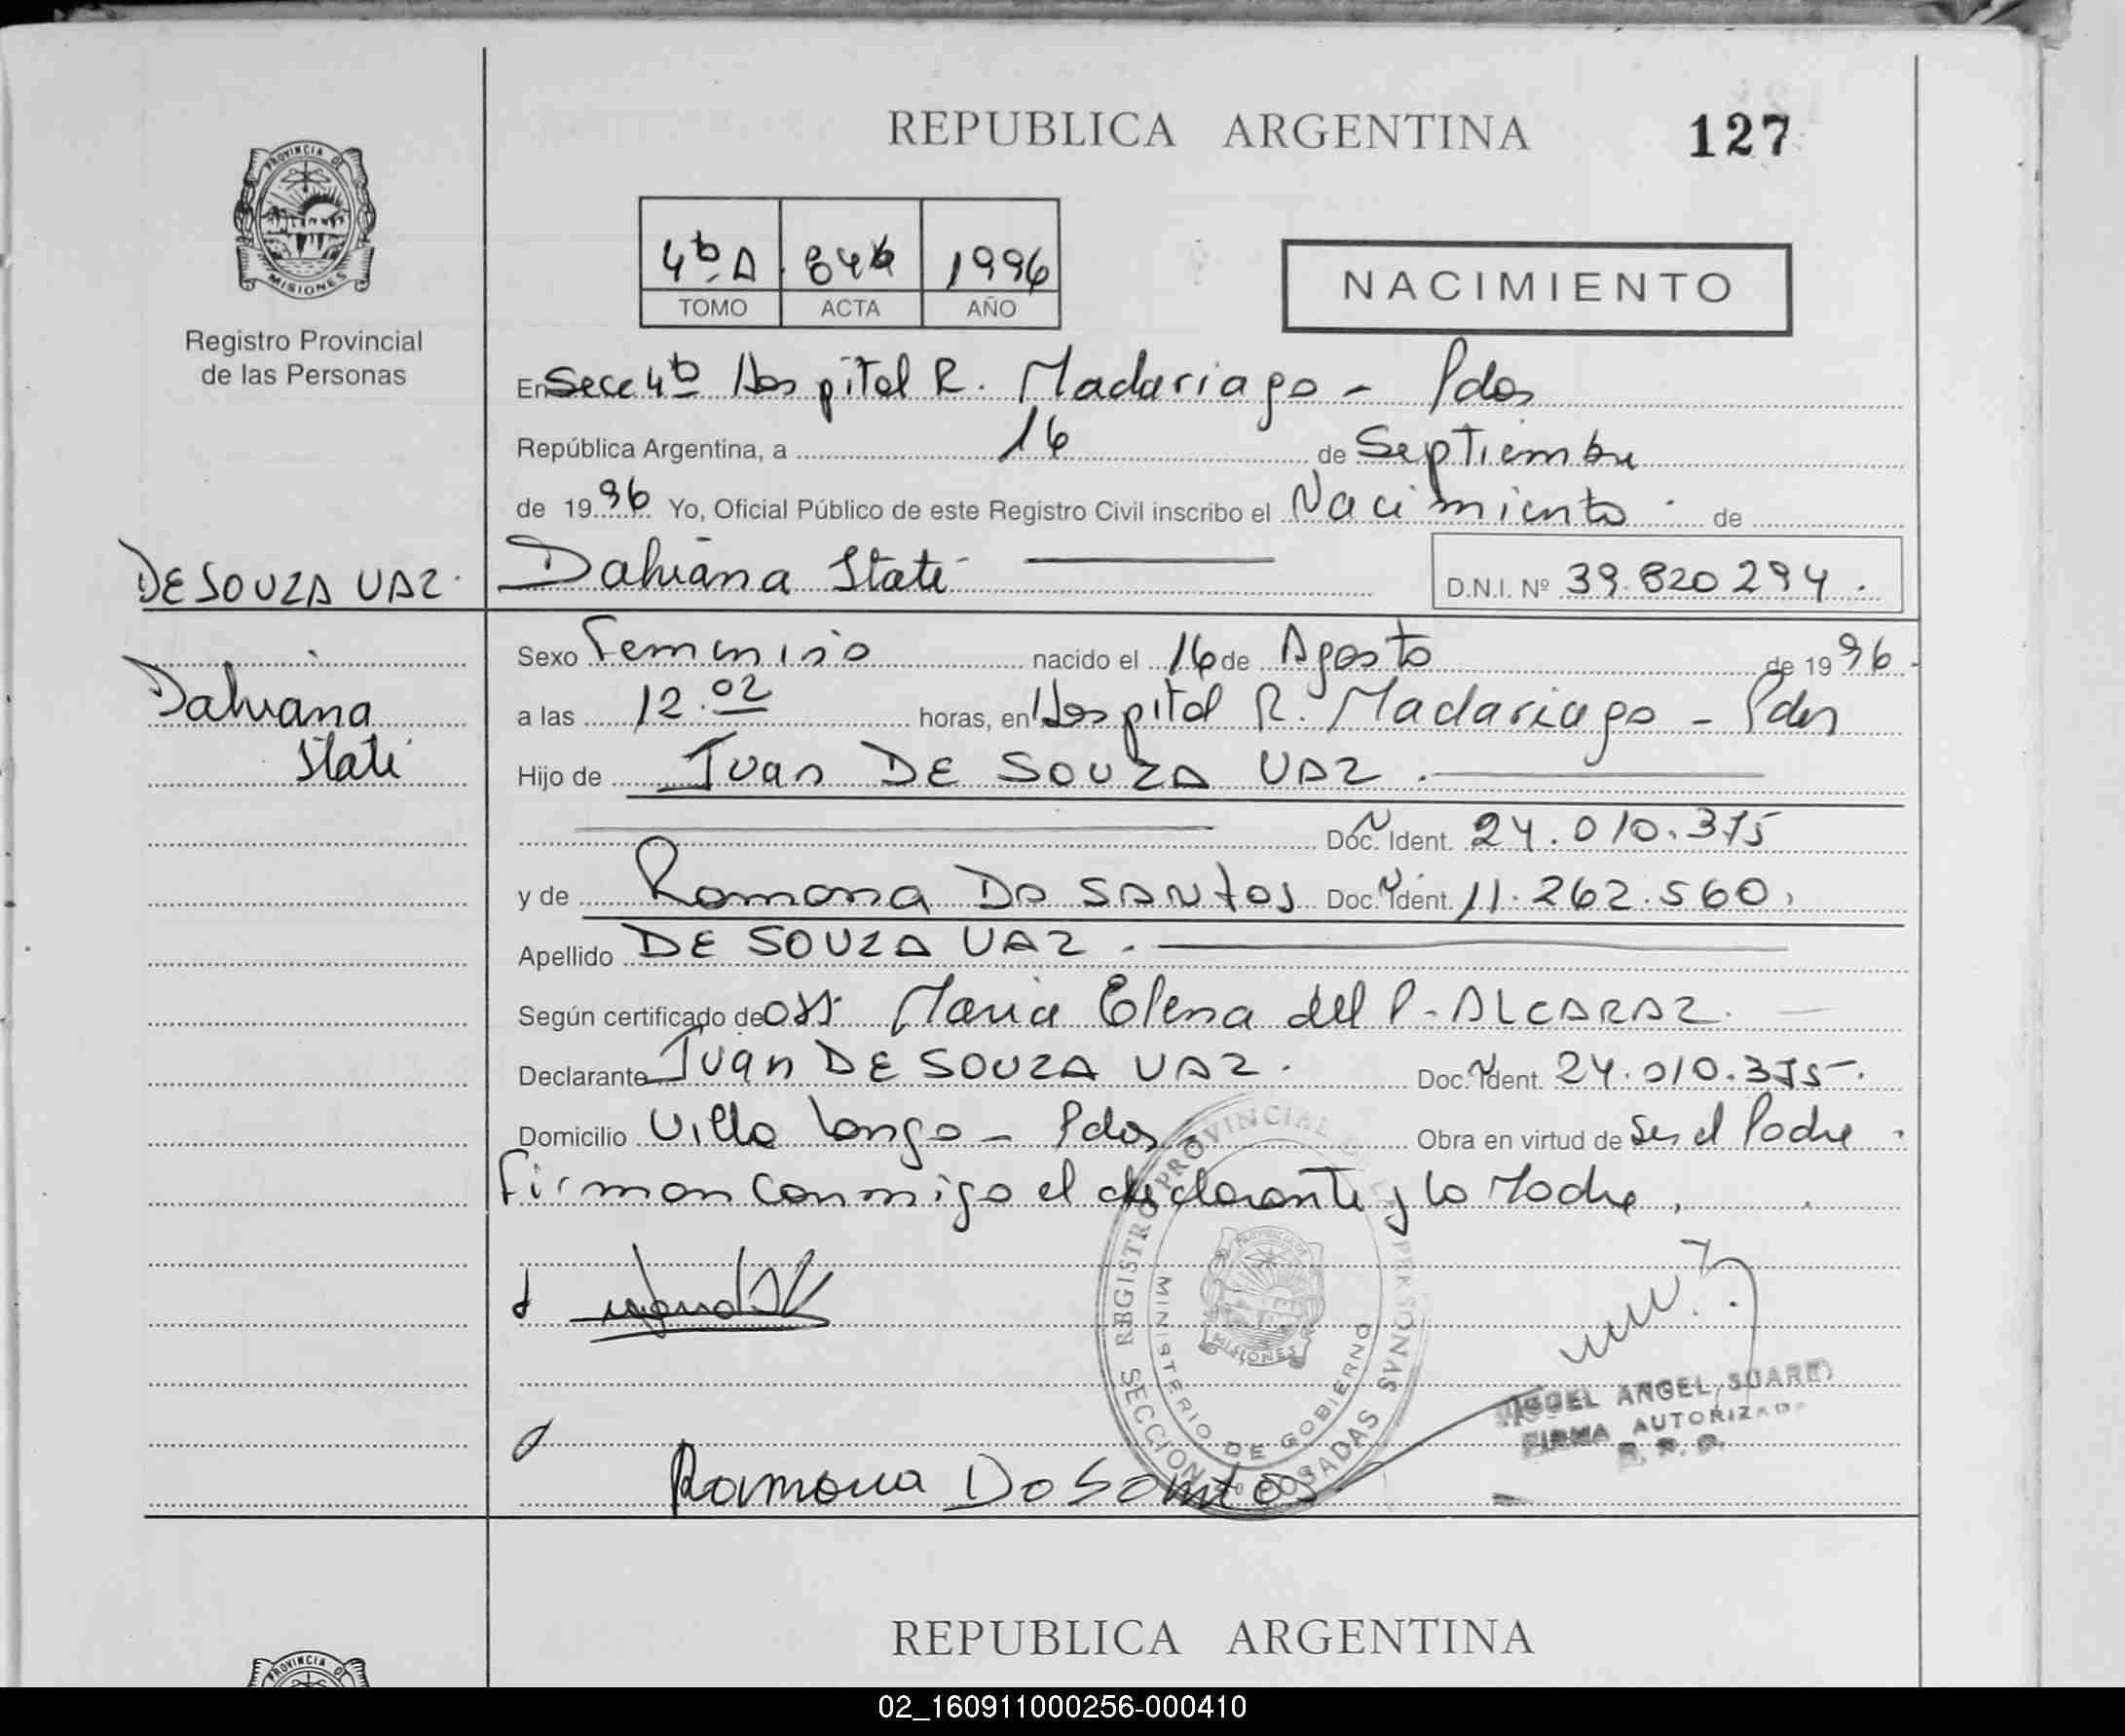 REPUBLICA ARGENTINA
127
PROVINCIA DE
MISIONES
Registro Provincial
de las Personas
4ta A 1996
TOMO ACTA AÑO
NACIMIENTO
En Secc 4ta Hospital R. Madariaga - Pdas
República Argentina, a 16 de Septiembre
de 1996 Yo, Oficial Público de este Registro Civil inscribo el Nacimiento de
DE SOUZA VAZ.
Dahiana D.N.I. Nº 39.820.294.
Dahiana
Sexo Femenino nacido el 16 de Agosto de 1996.
a las 12.02 horas, en Hospital R. Madariaga - Pdas
Hijo de Juan DE SOUZA VAZ.
Doc. Ident. 24.010.375
y de Ramona Do SANtos Doc. Ident. 11.262.560.
Apellido DE SOUZA VAZ.
Según certificado de Maria Elena del P. ALCARAZ.
Declarante Juan DE SOUZA VAZ. Doc. Ident. 24.010.375.
Domicilio Villa Longa - Pdas. Obra en virtud de Ser el Padre.
Firman conmigo el declarante y la Madre.
REGISTRO PROVINCIAL DE LAS PERSONAS
MINISTERIO DE GOBIERNO
PROVINCIA DE
MISIONES
SECCION POSADAS
MIGUEL ANGEL SUAREZ
FIRMA AUTORIZADA
R. P. P.
Ramona Do Santos
REPUBLICA ARGENTINA
PROVINCIA DE
02_160911000256-000410